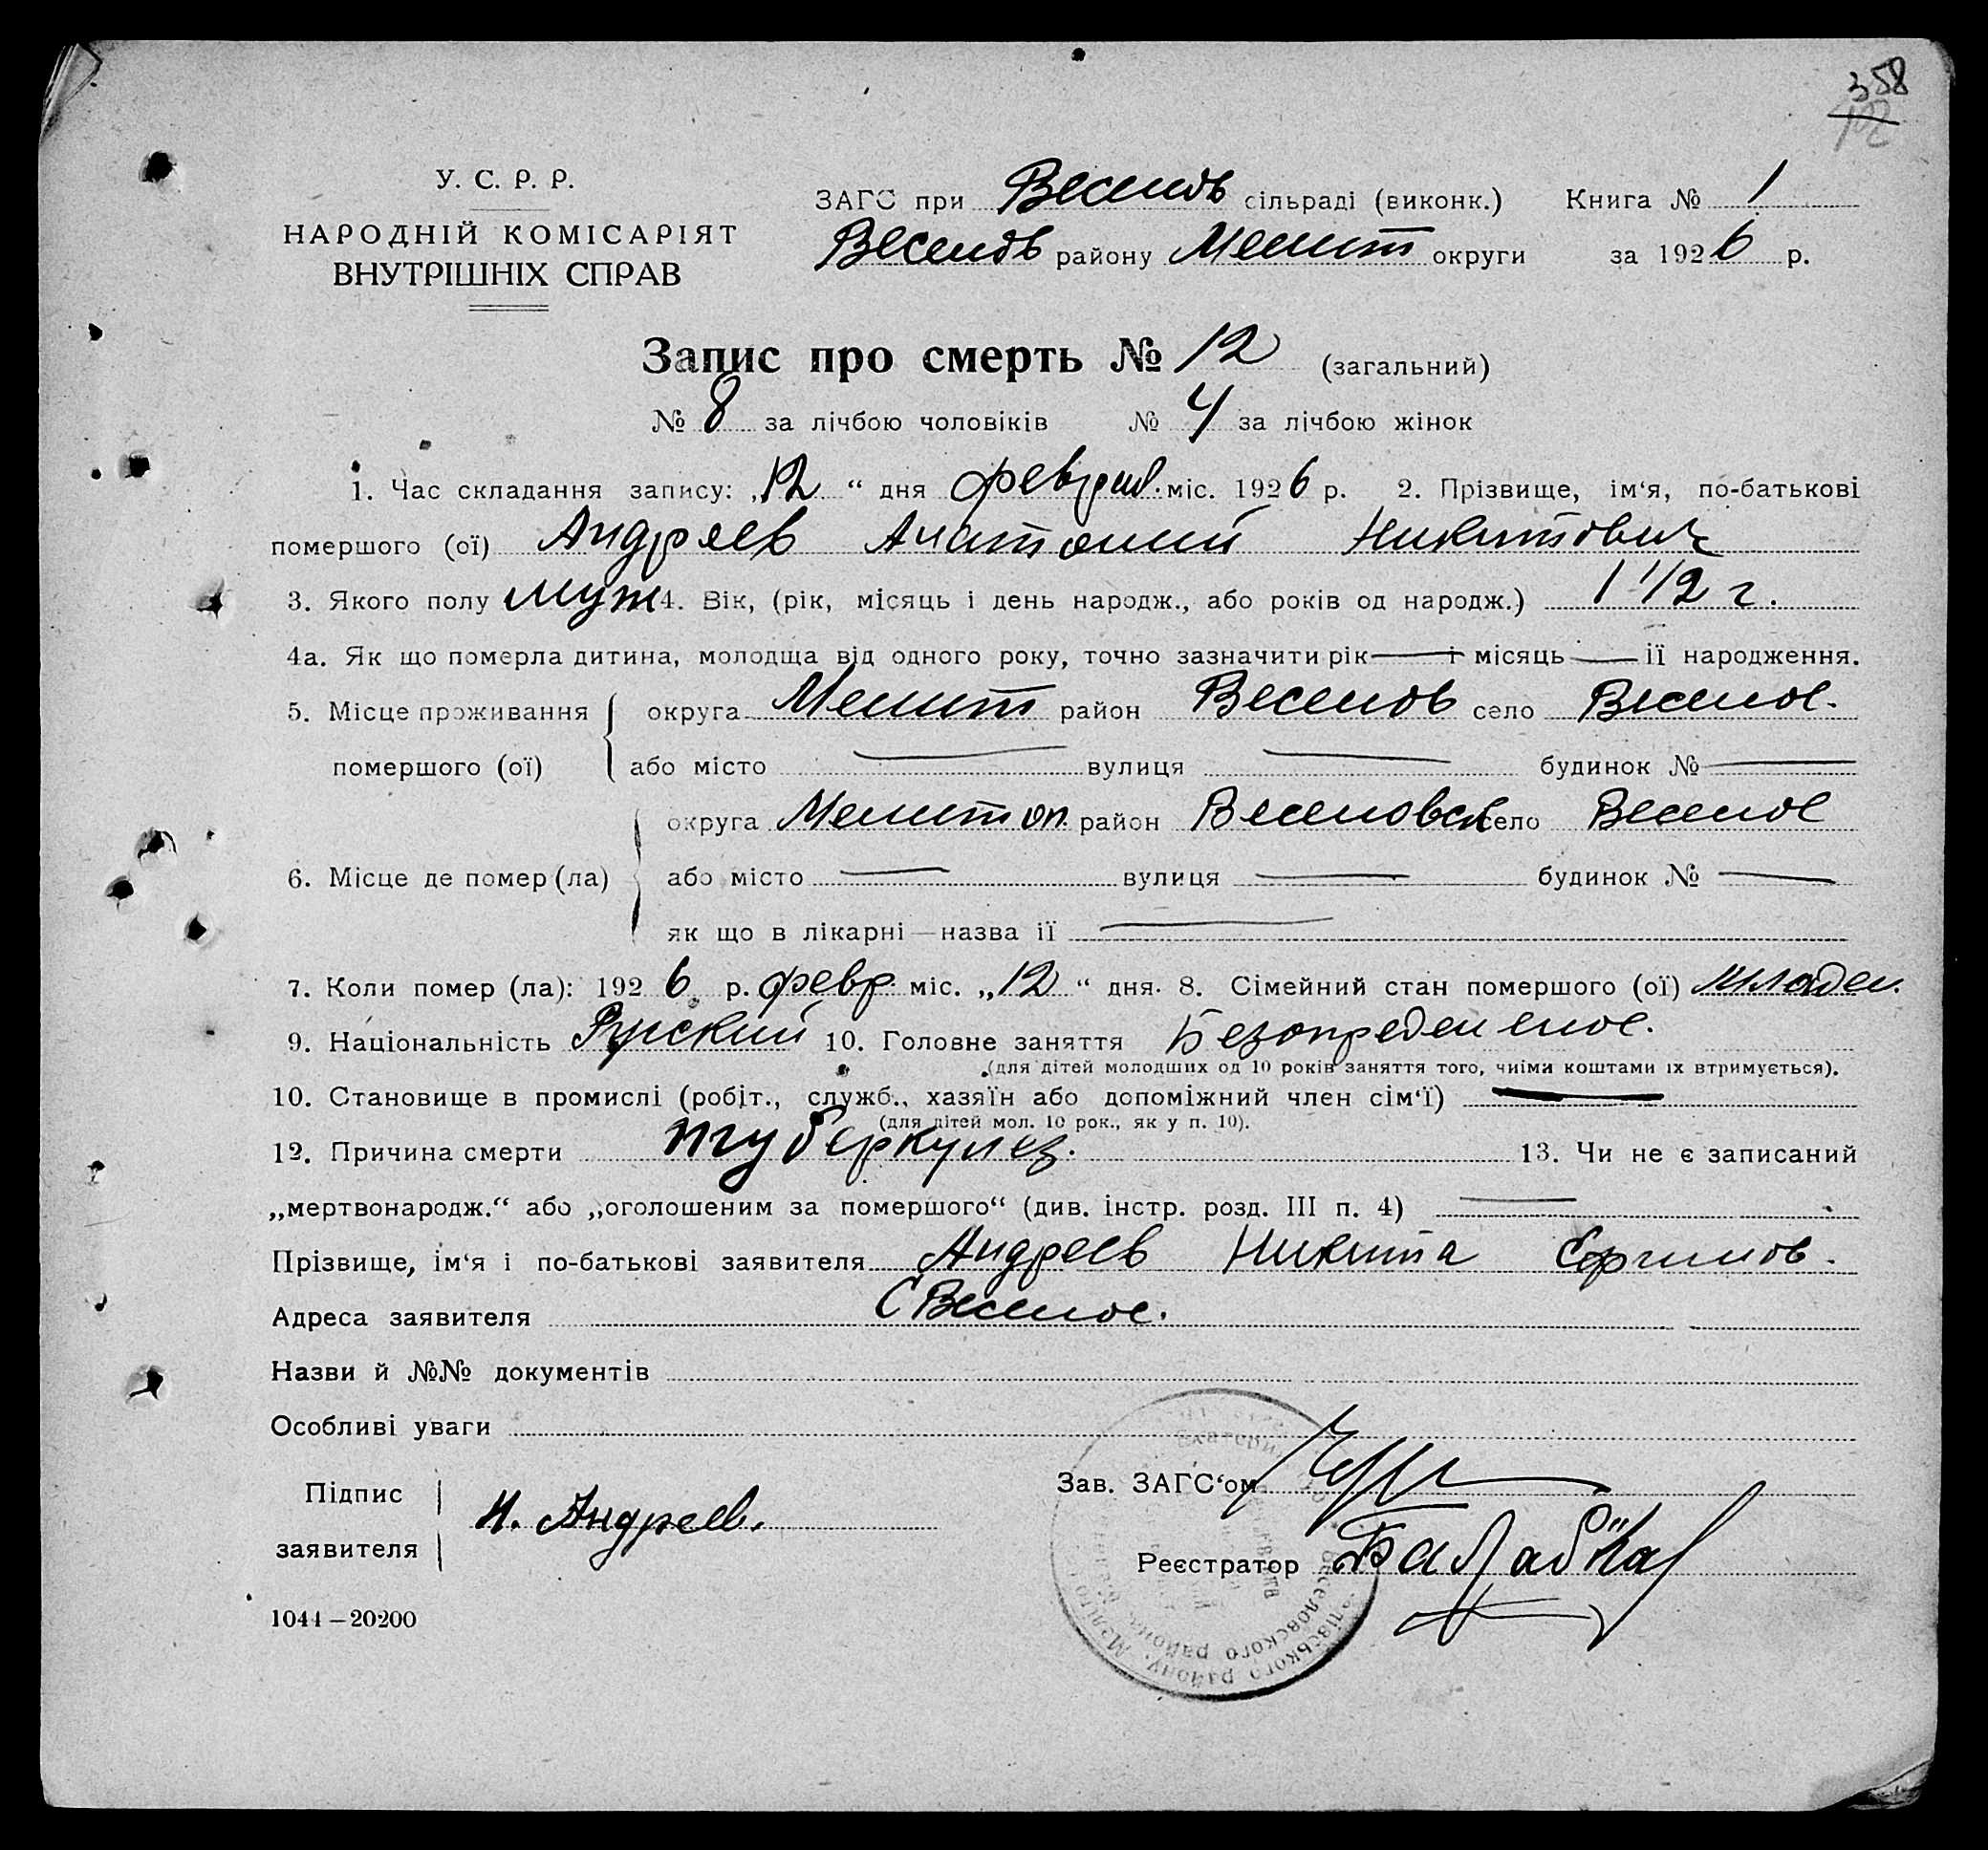 358
У. С. Р. Р.
НАРОДНІЙ КОМІСАРІЯТ
ВНУТРІШНІХ СПРАВ
ЗАГС при Веселов сільраді (виконк.) Книга № 1
Веселов району Мелит округи за 1926 р.
Запис про смерть № 12 (загальний)
№ 8 за лічбою чоловіків № 4 за лічбою жінок
1. Час складання запису: „12“ дня феврал. міс. 1926 р. 2. Прізвище, ім‘я, по-батькові
помершого (ої) Андреев Анатолий Никитович
3. Якого полу муж 4. Вік, (рік, місяць і день народж., або років од народж.) 1 1/2 г.
4а. Як що померла дитина, молодща від одного року, точно зазначити рік — і місяць — ії народження.
5. Місце проживання округа Мелит район Веселов село Веселое.
помершого (ої) або місто — вулиця — будинок № —
округа Мелитоп. район Веселовск село Веселое
6. Місце де помер (ла) або місто — вулиця — будинок № —
як що в лікарні — назва ії —
7. Коли помер (ла): 1926 р. февр. міс. „12“ дня. 8. Сімейний стан помершого (ої) младен.
9. Національність Русский 10. Головне заняття Безопределеное.
(для дітей молодших од 10 років заняття того, чиїми коштами їх втримується).
10. Становище в промислі (робіт., служб., хазяїн або допоміжний член сім‘ї) —
(для дітей мол. 10 рок., як у п. 10).
12. Причина смерти туберкулез. 13. Чи не є записаний
„мертвонародж.“ або „оголошеним за помершого“ (див. інстр. розд. III п. 4) —
Прізвище, ім‘я і по-батькові заявителя Андреев Никита Ефимов.
Адреса заявителя С Веселое.
Назви й №№ документів
Особливі уваги
Підпис
заявителя Н. Андреев.
Зав. ЗАГС‘ом
Реєстратор
Веселовского района
1044—20200